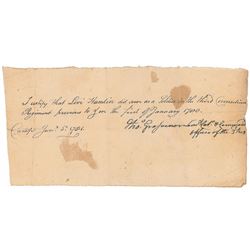 I certify that Levi Hamlin did serve as a Soldier in the third Connecticut
Regiment previous to the first of January 1780.
Camp Jany 5th 1781.
Thos Grosvenor Lieut Col.
officer of the